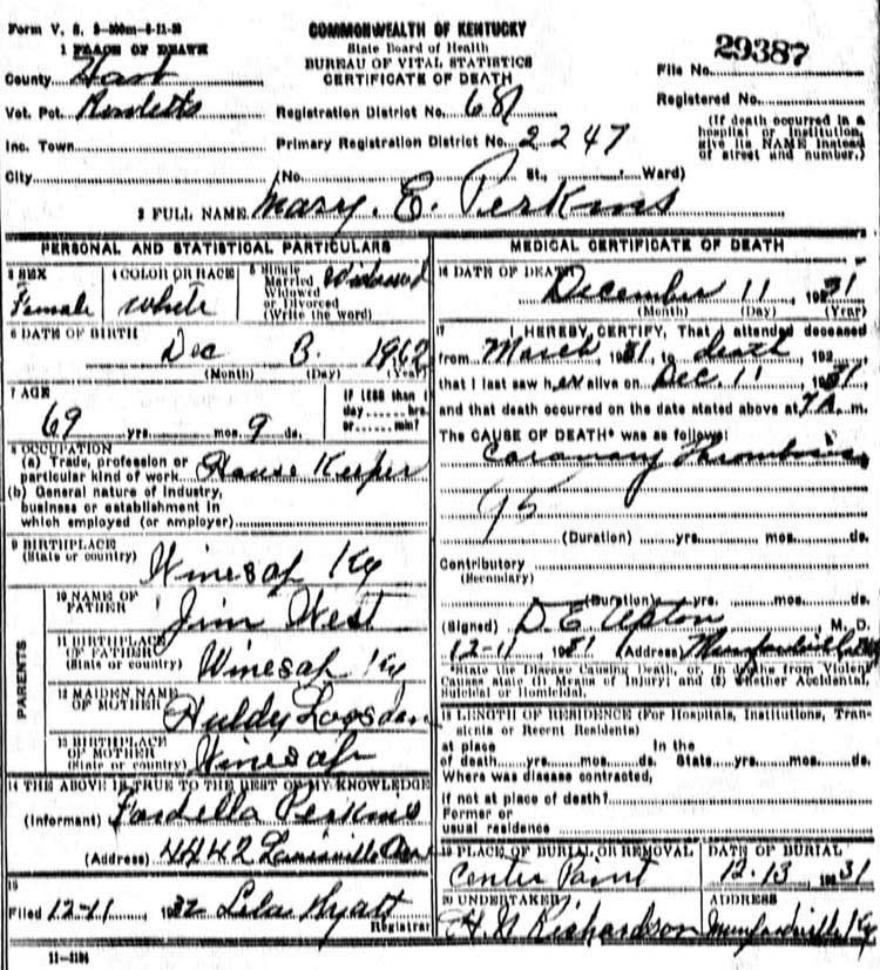 Form V. S. 3-300m-8-11-30
COMMONWEALTH OF KENTUCKY
State Board of Health
BUREAU OF VITAL STATISTICS
CERTIFICATE OF DEATH
1 PLACE OF DEATH
County Hart
File No. 29387
Vot. Pct.
Registration District No. 681
Registered No.
Inc. Town
Primary Registration District No. 2247
(If death occurred in a
hospital or institution,
give its NAME instead
of street and number.)
City (No. St., Ward)
2 FULL NAME Mary. E. Perkins
PERSONAL AND STATISTICAL PARTICULARS
3 SEX
Female
4 COLOR OR RACE
white
5 Single
Married
Widowed
or Divorced
(Write the word)
Widowed
6 DATE OF BIRTH
Dec 3. 1962
(Month) (Day) (Year)
7 AGE
69 yrs. mos. 9 ds.
If LESS than 1
day hrs.
or min?
8 OCCUPATION
(a) Trade, profession or
particular kind of work House Keeper
(b) General nature of industry,
business or establishment in
which employed (or employer)
9 BIRTHPLACE
(State or country) Winesap Ky
PARENTS
10 NAME OF
FATHER Jim West
11 BIRTHPLACE
OF FATHER
(State or country) Winesap Ky
12 MAIDEN NAME
OF MOTHER Huldy Logsdon
13 BIRTHPLACE
OF MOTHER
(State or country) Winesap
14 THE ABOVE IS TRUE TO THE BEST OF MY KNOWLEDGE
(Informant) Perkins
(Address) 4442 Louisville Ave
15
Filed 12-11, 1932 Lela Hyatt
Registrar
11-3184
MEDICAL CERTIFICATE OF DEATH
16 DATE OF DEATH
December 11, 1931
(Month) (Day) (Year)
17 I HEREBY CERTIFY, That I attended deceased
from March, 1931, to death, 192
that I last saw her alive on Dec. 11, 1931
and that death occurred on the date stated above at 7 A. m.
The CAUSE OF DEATH* was as follows:
Coronary Thrombosis
95
(Duration) yrs. mos. ds.
Contributory
(Secondary)
(Duration) yrs. mos. ds.
(Signed) D. E. Upton, M. D.
12-11, 1931 (Address) Munfordville Ky
*State the Disease Causing Death, or, in deaths from Violent
Causes state (1) Means of Injury; and (2) whether Accidental,
Suicidal or Homicidal.
18 LENGTH OF RESIDENCE (For Hospitals, Institutions, Tran-
sients or Recent Residents)
at place In the
of death yrs. mos. ds. State yrs. mos. ds.
Where was disease contracted,
if not at place of death?
Former or
usual residence
19 PLACE OF BURIAL OR REMOVAL
Center Point
DATE OF BURIAL
12-13, 1931
20 UNDERTAKER
H. N Richardson
ADDRESS
Munfordville Ky